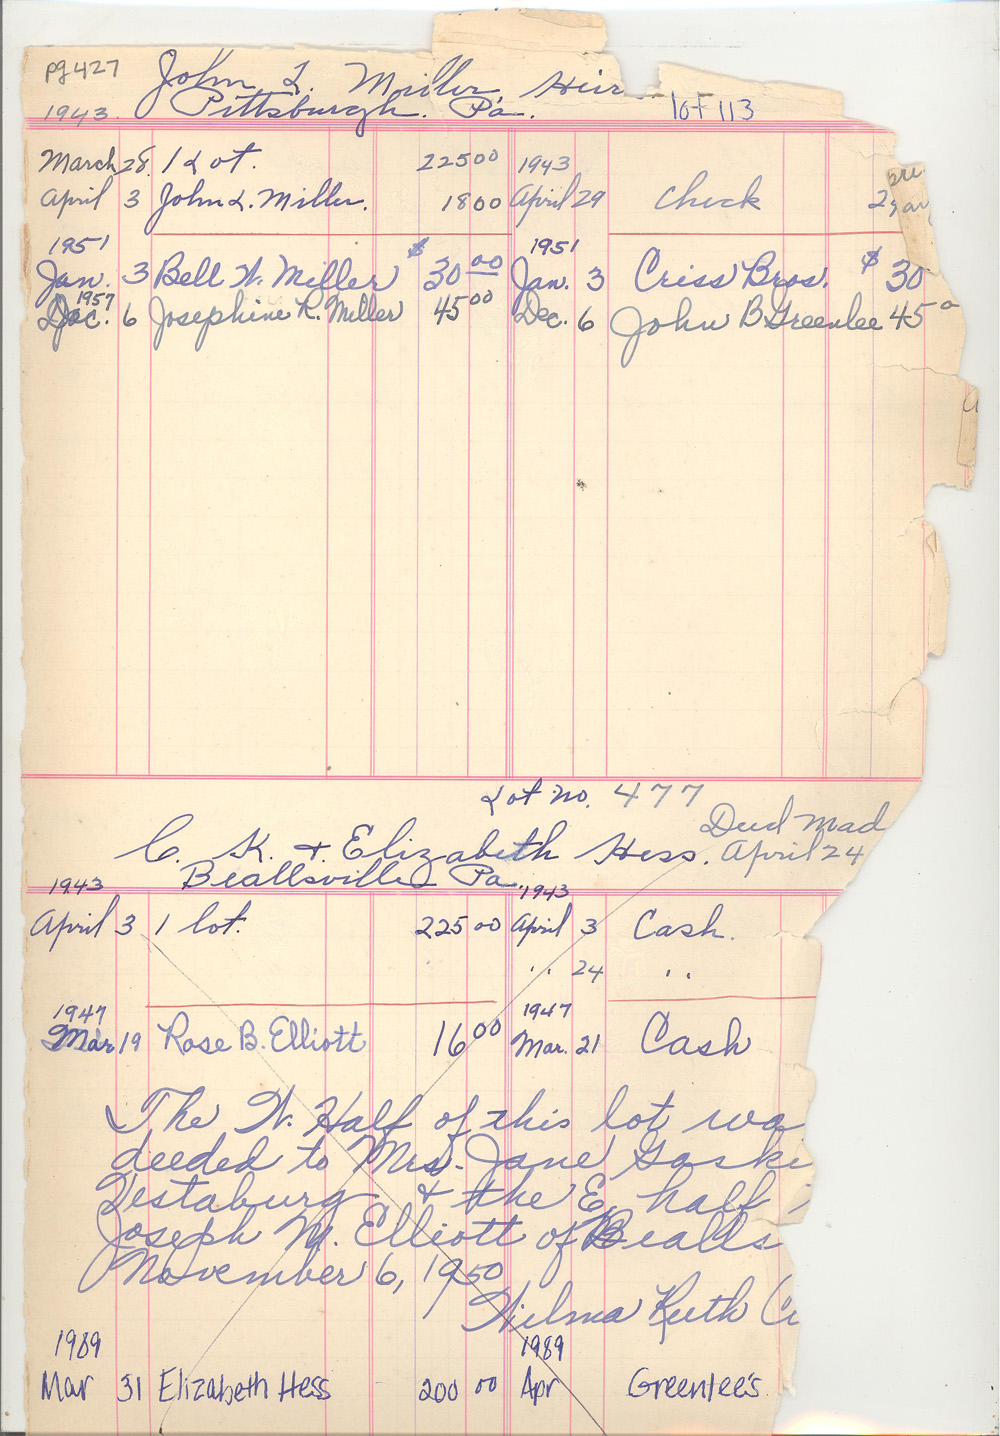 pg 427 John L. Miller, Heir
1943. Pittsburgh. Pa. lot 113
March 28. 1 Lot. 225 00 1943
April 3 John L. Miller. 18 00 April 29 Check 2
1951 1951
Jan. 3 Bell W. Miller $ 30 00 Jan. 3 Criss Bros. $ 30
1957
Dec. 6 Josephine R. Miller 45 00 Dec. 6 John B Greenlee 45 0
Lot no. 477
Deed mad
C. K. & Elizabeth Hess. April 24
Beallsville Pa.
1943 1943
April 3 1 lot. 225 00 April 3 Cash.
" 24 "
1947 1947
Mar 19 Rose B. Elliott 16 00 Mar. 21 Cash
The W. Half of this lot wa
deeded to Mrs. Jane Gaski
Vestaburg & the E. half
Joseph M. Elliott of Bealls
November 6, 1950
Wilma Ruth
1989 1989
Mar 31 Elizabeth Hess 200 00 Apr Greenlee's